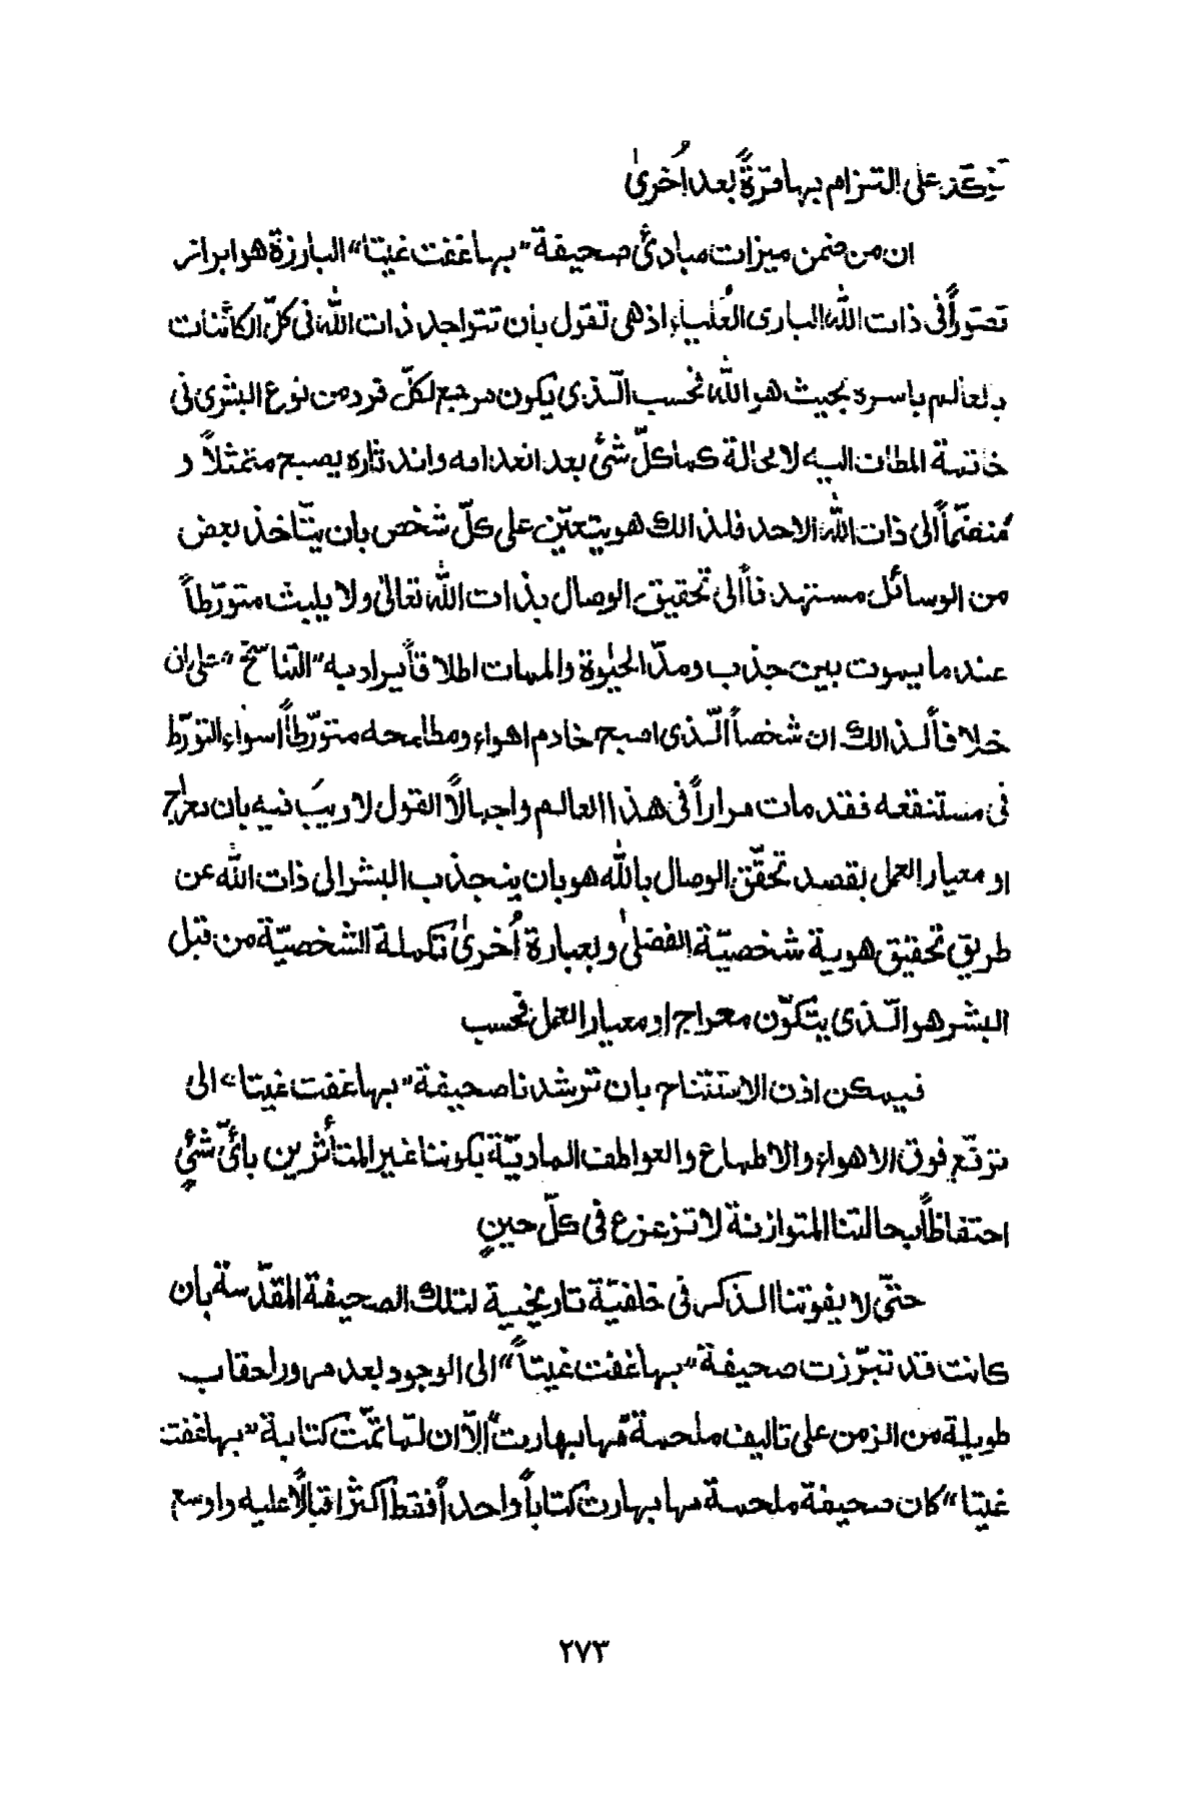 تركّز على التزام بها مرّةً بعد اُخرىٰ
ان من ضمن ميزات مبادئ صحيفة "بهاغفت غيتا" البارزة هو ابراز
تصوّراً فى ذات الله البارى العُلياء اذ هى تقول بأن تتواجد ذات الله فى كلّ الكائنات
بالعالم باسره بحيث هو الله فحسب الّذى يكون مرجع لكلّ فرد من نوع البشرى فى
خاتمة المطاف اليه لا محالة كما كلّ شئ بعد انعدامه واندثاره يصبح متمثلاً و
مُنضمّاً الى ذات الله الاحد فلذالك هو يتعيّن على كلّ شخص بان يتّاخذ بعض
من الوسائل مستهدفاً الى تحقيق الوصال بذات الله تعالى ولا يلبث متورّطاً
عندما يموت بين جذب ومدّ الحيٰوة والممات اطلاقاً يراد به "التناسخ" على ان
خلافاً لذالك ان شخصاً الّذى اصبح خادم اهواء ومطامحه متورّطاً اسواء التورّط
فى مستنقعه فقد مات مراراً فى هذا العالم واجمالاً القول لا ريبَ فيه بان معراج
او معيار العمل بقصد تحقّق الوصال بالله هو بان ينجذب البشر الى ذات الله عن
طريق تحقيق هوية شخصيّة الفضلىٰ وبعبارة اُخرىٰ تكملة الشخصيّة من قبل
البشر هو الّذى يتكوّن معراج او معيار العمل فحسب
فيمكن اذن الاستنتاج بان ترشدنا صحيفة "بهاغفت غيتا" الى
ترفّع فوق الاهواء والاطماع والعواطف الماديّة بكوننا غير المتأثرين بأىّ شئٍ
احتفاظاً بحالتنا المتوازنة لا تزعزع فى كلّ حينٍ
حتّى لا يفوتنا الذكر فى خلفيّة تاريخية لتلك الصحيفة المقدّسة بان
كانت قد تبرّزت صحيفة "بهاغفت غيتاً" الى الوجود بعد مرور احقاب
طويلة من الزمن على تاليف ملحمة مُها بهارت الّا ان لمّا تمّت كتابة "بهاغفت
غيتا" كان صحيفة ملحمة مها بهارت كتاباً واحداً فقط اكثر اقبالاً عليه واوسع
٢٧٣